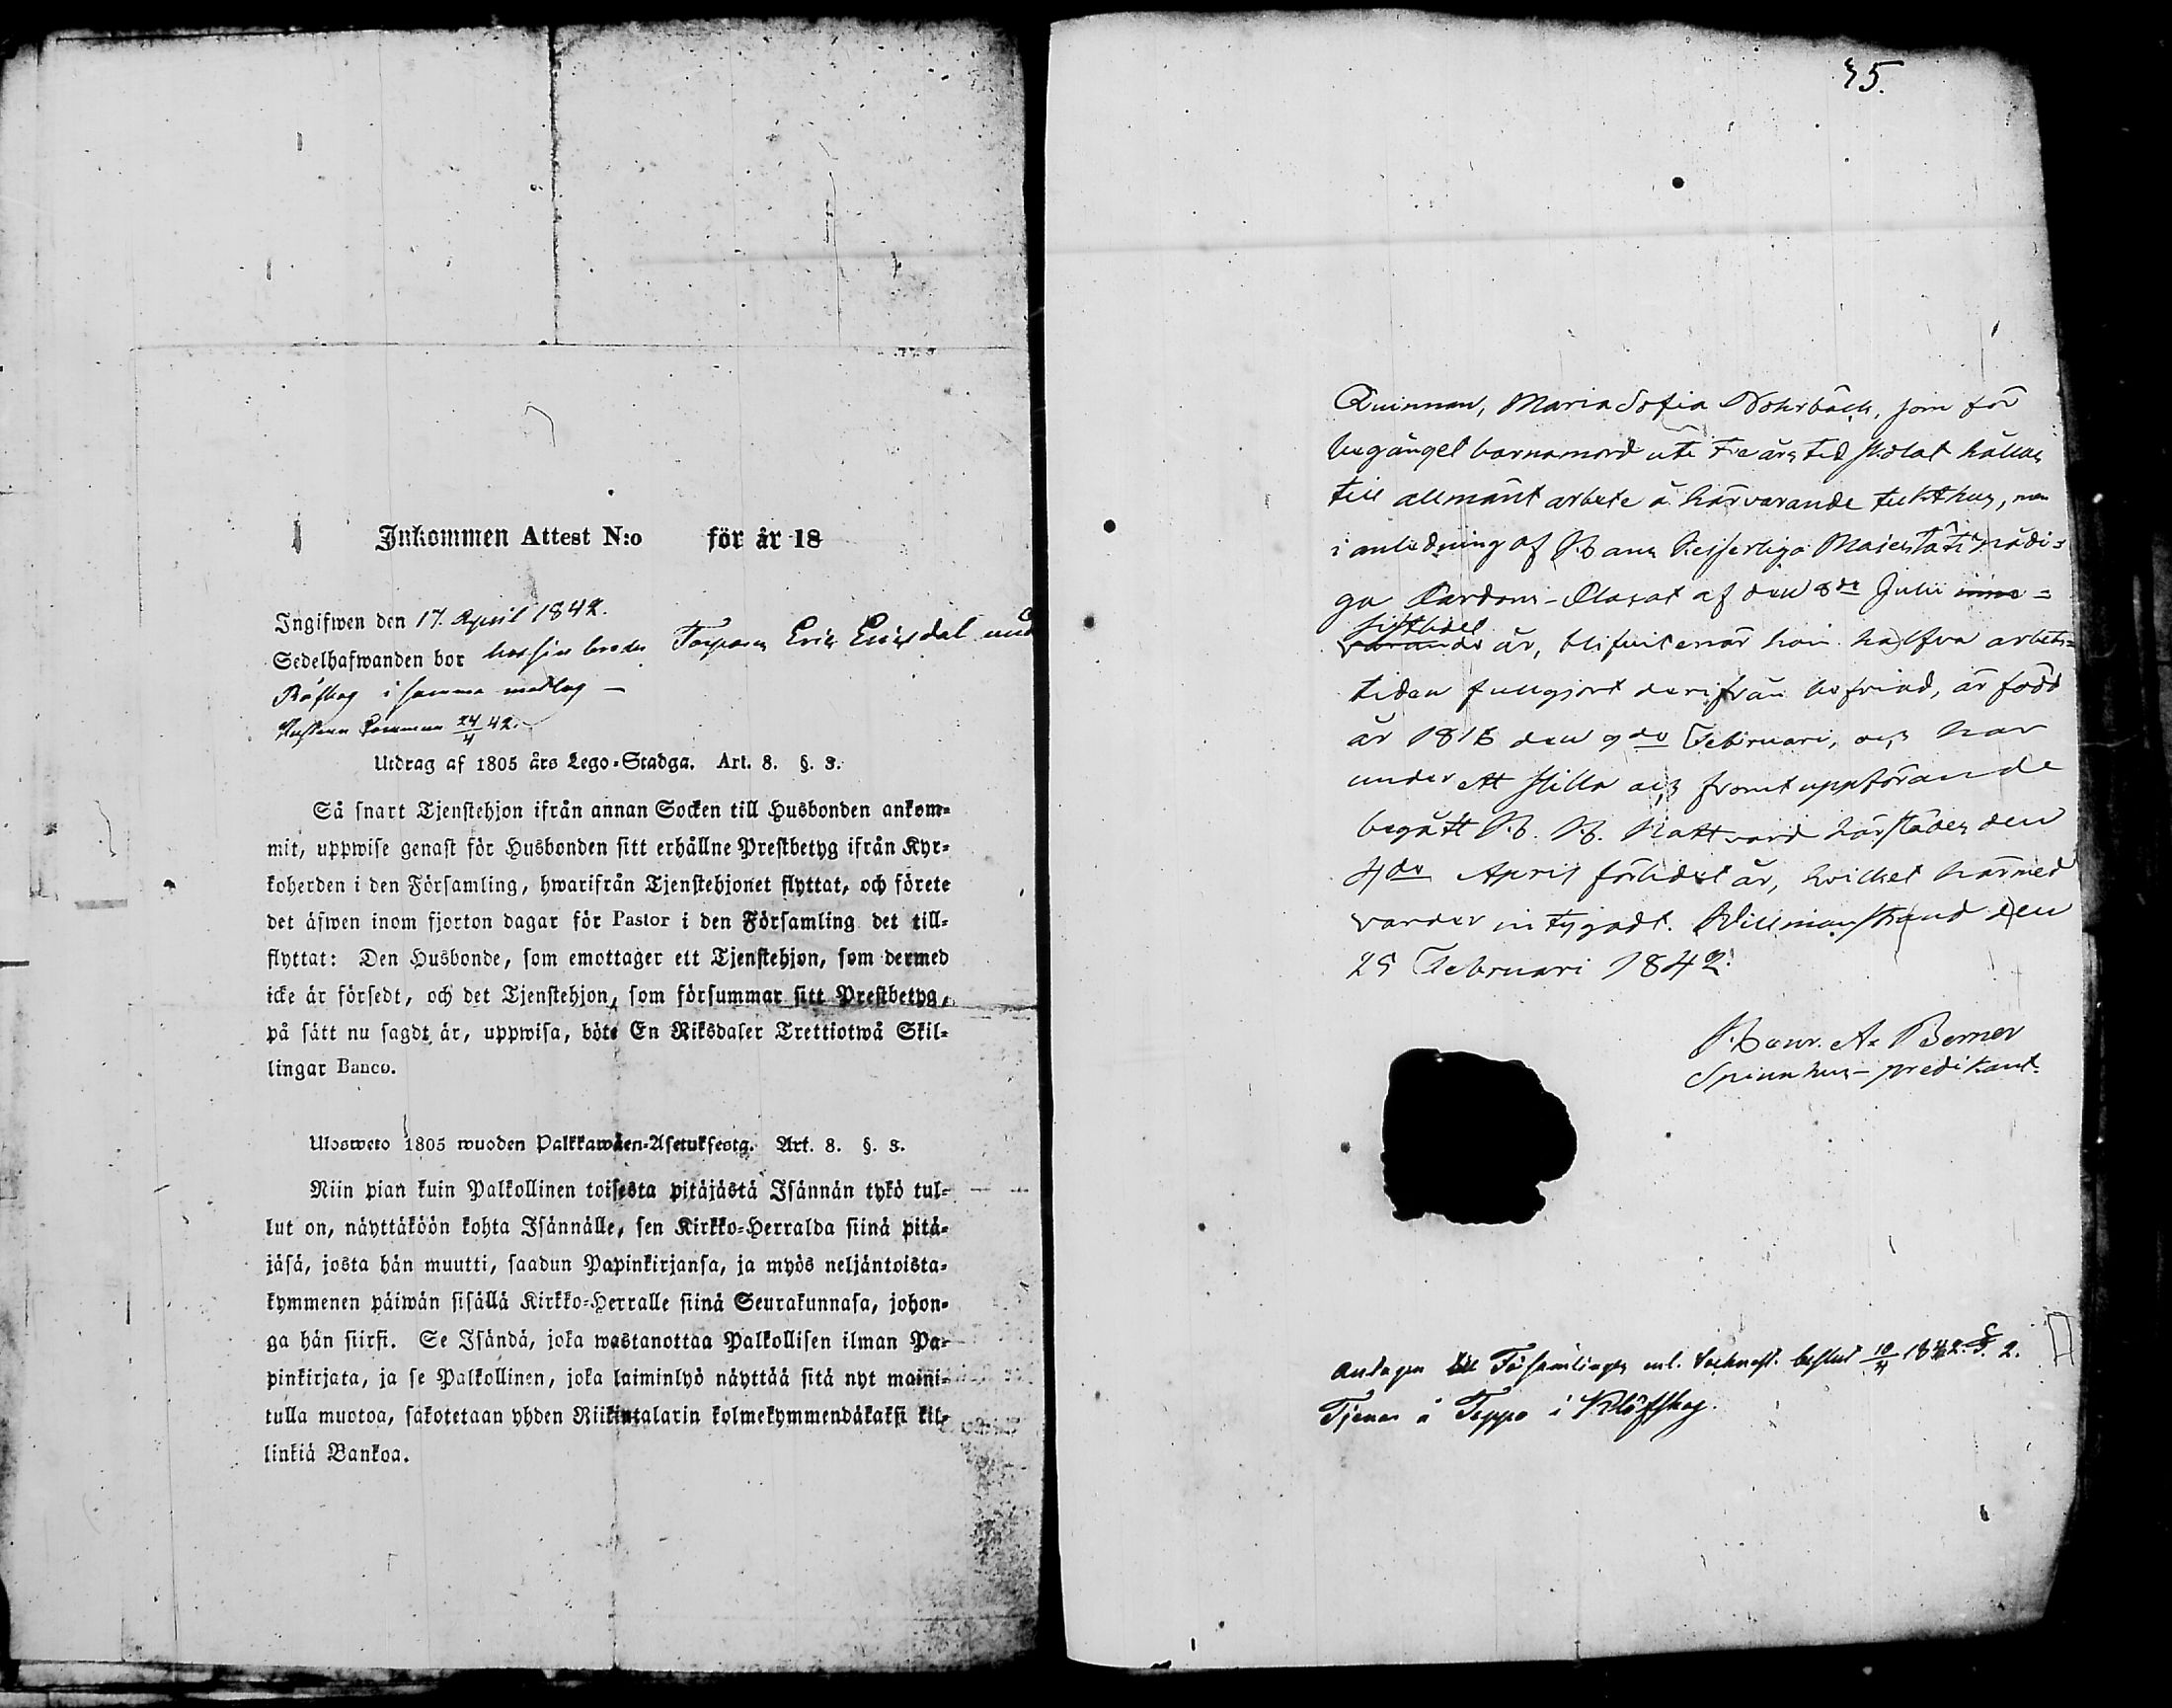 Inkommen Attest N:o för år 18
Ingifwen den 17. April 1842.
Sedelhafwanden bor hos sin broder Torparen Eric Ericsdal und
Röfskog i samma
24/4 42.
Utdrag af 1805 års Lego-Stadga. Art. 8. §. 3.
Så snart Tjenstehjon ifrån annan Socken till Husbonden ankom-
mit, uppwise genast för Husbonden sitt erhållne Prestbetyg ifrån Kyr-
koherden i den Församling, hwarifrån Tjenstehjonet flyttat, och förete
det äfwen inom fjorton dagar för Pastor i den Församling det till-
flyttat: Den Husbonde, som emottager ett Tjenstehjon, som dermed
icke är försedt, och det Tjenstehjon, som försummar sitt Prestbetyg,
på sätt nu sagdt är, uppwisa, böte En Riksdaler Trettiotwå Skil-
lingar Banco.
Ulosweto 1805 wuoden Palkkawäen-Asetuksesta. Art. 8. §. 3.
Niin pian kuin Palkollinen toisesta pitäjästä Isännän tykö tul-
lut on, näyttäköön kohta Isännälle, sen Kirkko-Herralda siinä pitä-
jäsä, josta hän muutti, saadun Papinkirjansa, ja myös neljäntoista-
kymmenen päiwän sisällä Kirkko-Herralle siinä Seurakunnasa, johon-
ga hän siirsi. Se Isändä, joka wastanottaa Palkollisen ilman Pa-
pinkirjata, ja se Palkollinen, joka laiminlyö näyttää sitä nyt maini-
tulla muotoa, sakotetaan yhden Riikintalarin kolmekymmendäkaksi kil-
linkiä Bankoa.
35.
Quinnan, Maria Sofia Nohrbäck, som för
begånget barnamord ute Tre års tid skolat hållas
till allmänt arbete å härvarande tukthus, men
i anledning af Hans Kejserliga Majestäts nådi-
ga Pardons-Placat af den 8de Julii inne-
sistlidet
varande år, blifvit enär hon halfva arbets-
tiden fullgjort derifrån befriad, är född
år 1816 den 9de Februari, och har
under ett stilla och fromt uppförande
begått H. H. Nattvard härstädes den
4de April förlidet år, hvilket härmed
varder intygadt. Willmanstrand den
25 Februari 1842.
Hanr. A. Berner
Spinnhus-predikant.
Antagen till Församlingen enl. Socknest. beslut 10/4 1842. §. 2.
Tjenar å Teppo i Klöfskog.